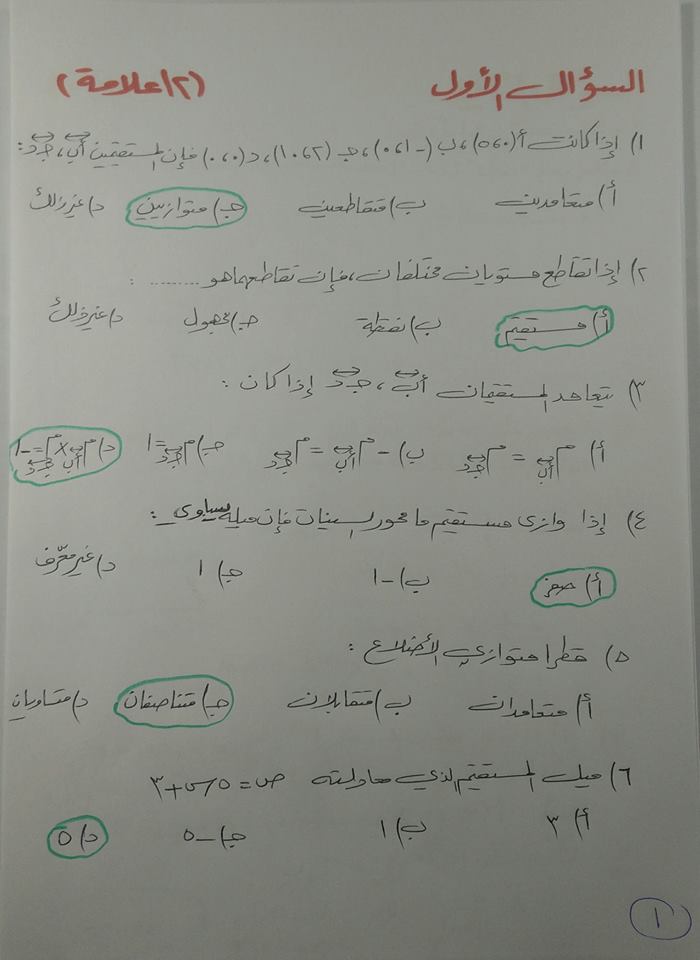 السؤال الأول (١٢ علامة)
١) إذا كانت أ(٥،٠)، ب(-٠،١)، جـ(١٠،٢)، د(٠،٠) فإن المستقيمين أب، جـد:
أ) متعامدين ب) متقاطعين جـ) متوازيين د) غير ذلك
٢) إذا تقاطع مستويان مختلفان، فإن تقاطعهما هو ........ :
أ) مستقيم ب) نقطة جـ) مجهول د) غير ذلك
٣) يتعامد المستقيمان أب، جـد إذا كان :
أ) م أب = م جـد ب) -م أب = م جـد جـ) م جـد = ١ د) م أب × م جـد = -١
٤) إذا وازى مستقيم ما محور السينات فإن ميله يساوي :
أ) صفر ب) -١ جـ) ١ د) غير معرّف
٥) قطرا متوازي الأضلاع :
أ) متعامدان ب) متقابلان جـ) متناصفان د) متساويان
٦) ميل المستقيم الذي معادلته ص = ٥س + ٣
أ) ٣ ب) ١ جـ) -٥ د) ٥
١